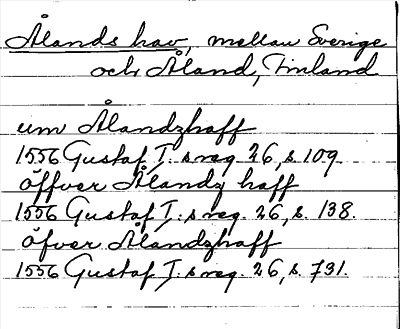 Ålands hav, mellan Sverige
och Åland, Finland
um Ålandzhaff
1556 Gustaf I:s reg. 26, s. 109
öffver Ålandz haff
1556 Gustaf I:s reg. 26, s. 138.
öfver Ålandzhaff
1556 Gustaf I:s reg. 26, s. 731.